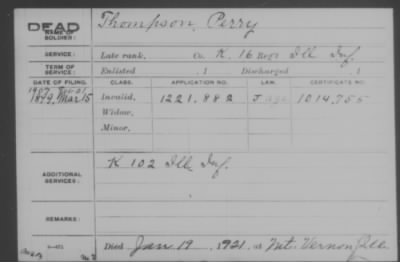 DEAD
NAME OF SOLDIER: Thompson, Perry
SERVICE: Late rank, Co. K, 16 Reg't Ill Inf.
TERM OF SERVICE: Enlisted , 1 Discharged , 1
DATE OF FILING. CLASS. APPLICATION NO. LAW. CERTIFICATE NO.
1879 Mar 15 Invalid, 1221.882 1014.755
Widow,
Minor,
ADDITIONAL SERVICES: K 102 Ill Inf.
REMARKS:
Died Jan 19, 1921, at Mt. Vernon Ill.